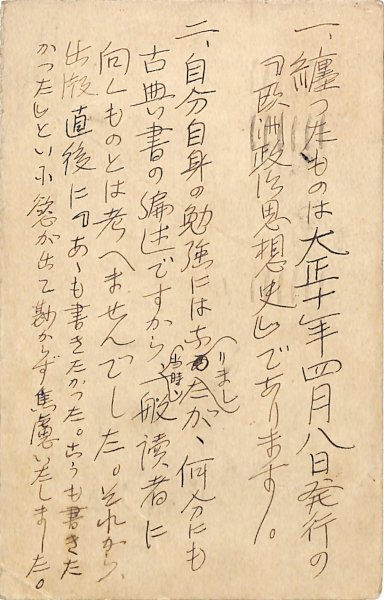 一、纏つたものは大正十年四月八日発行の
『欧洲政治思想史』であります。
二、自分自身の勉強にはなりましたが、何分にも
古典書の編述ですから当時、一般読者に
向くものとは考へませんでした。それから、
出版直後に『あゝも書きたかつた。こうも書きた
かつた』といふ念が出て勘からず焦慮いたしました。